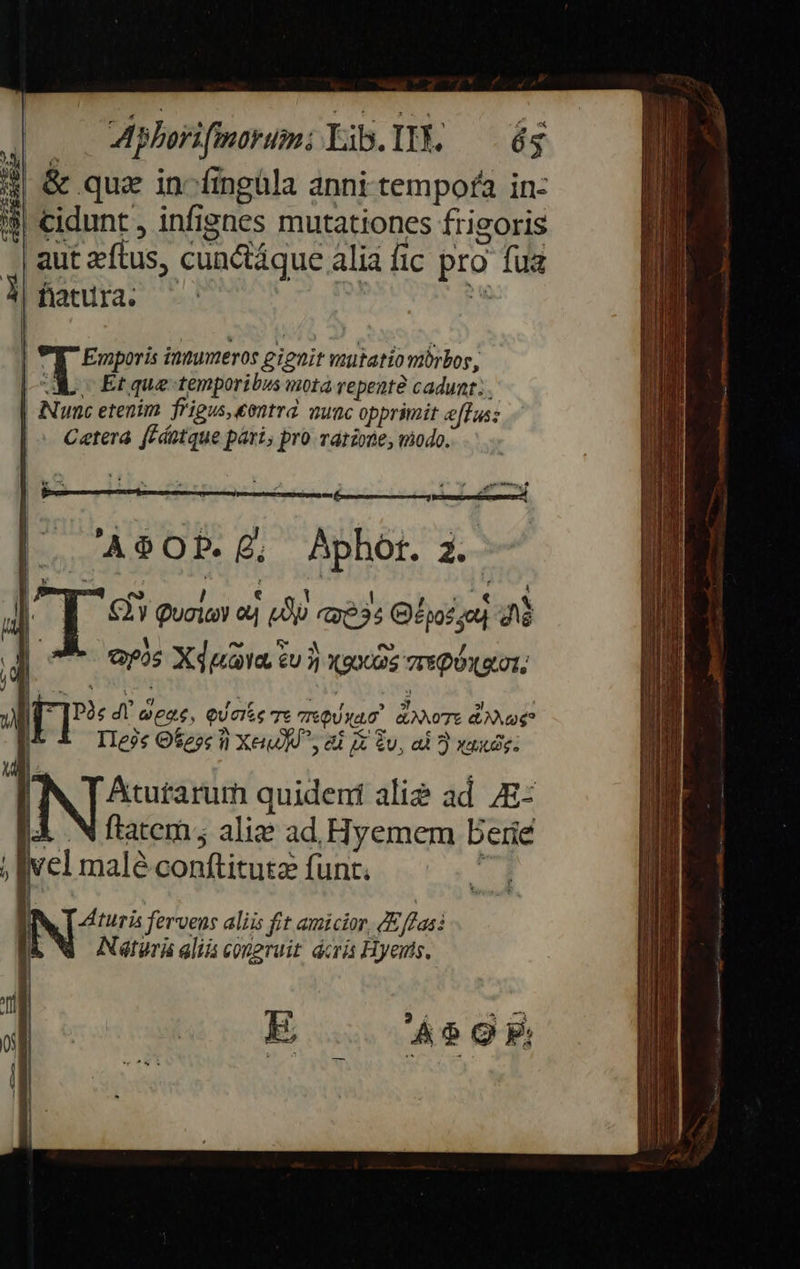 Aphoriſmorum; Lib. III. 65
& quæ in ſingula anni tempora in-
cidunt, inſignes mutationes frigoris
aut æſtus, cunctáque alia ſic pro ſua
natura.
TEmporis innumeros gignit mutatio mòrbos,
Et quæ temporibus mota repentè cadunt:
Nunc etenim frigus, contrà nunc opprimit æſtus:
Cætera ſtántque pari, pro ratione, modo.
ἈΦΟΡ. β. Aphor. 2.
ΤΩν φυσίων αἱ μὲν πρὸς Θέρος, αἱ δὲ
πρὸς Χειμῶνα εὖ ἢ κακῶς πεφύκασι.
ΠΡὸς δ' ὥρας, φύσιές τε πεφύκασ' ἄλλοτε ἄλλως·
Πρὸς Θέρος ἢ Χειμῶν', αἱ μὲν εὖ, αἱ δὲ κακῶς.
NAturarum quidem aliæ ad Æ-
ſtatem; aliæ ad Hyemem benè
vel malè conſtitutæ ſunt.
NAturis fervens aliis fit amicior Æſtas:
Naturis aliis congruit acris Hyems.
E ἈΦΟΡ.